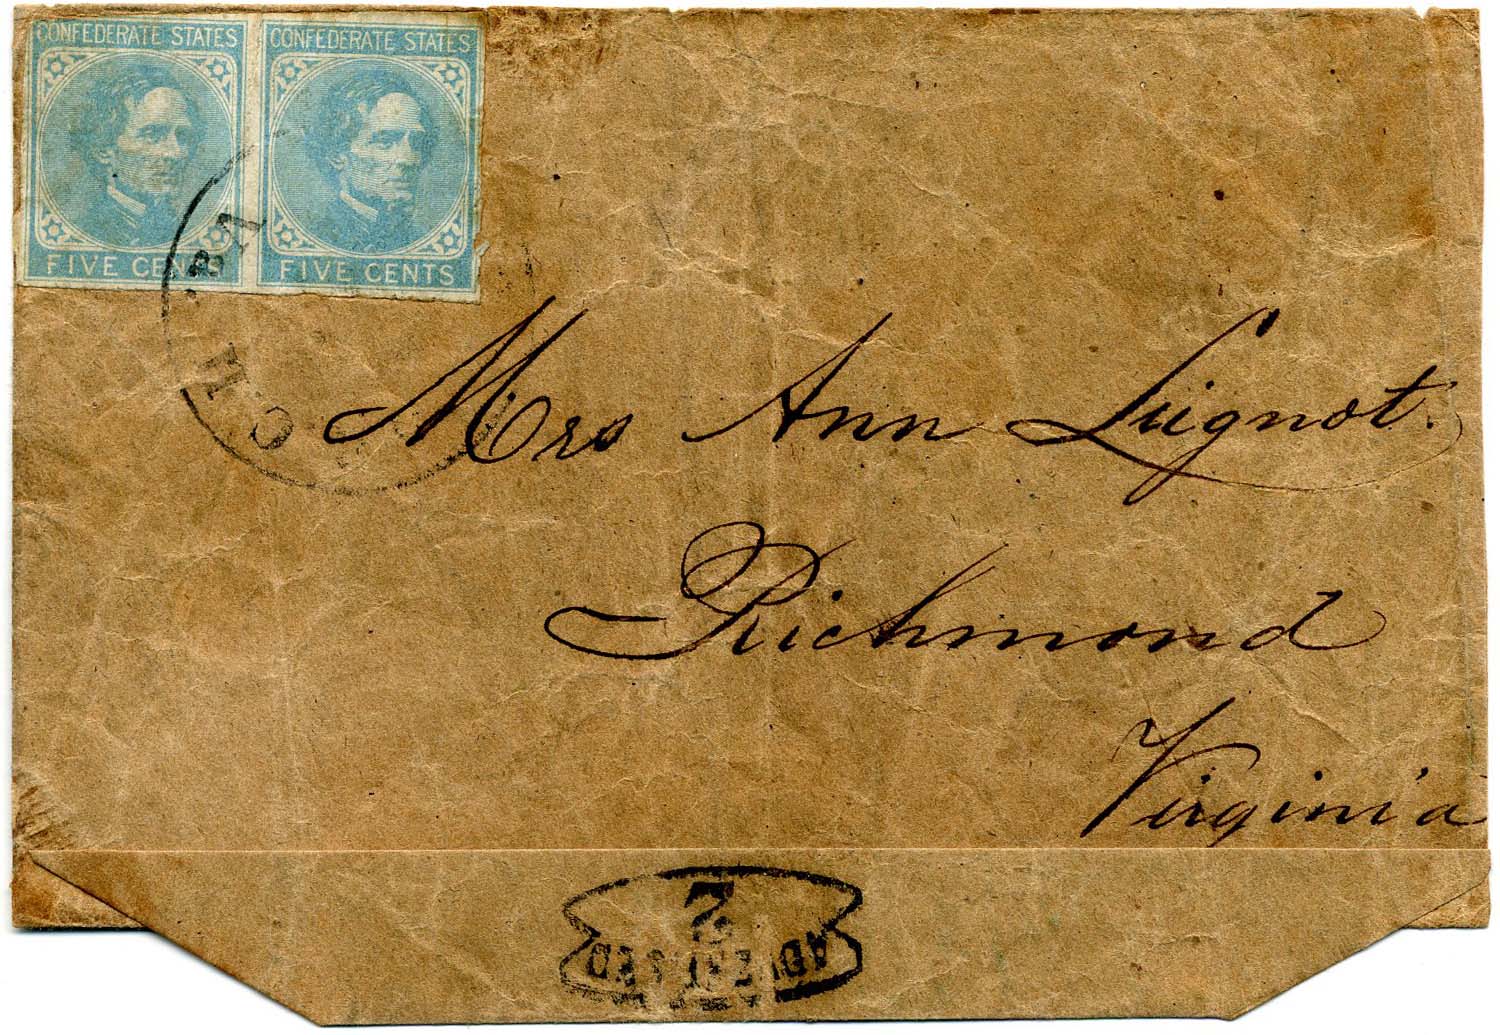 CONFEDERATE STATES
FIVE CENTS
CONFEDERATE STATES
FIVE CENTS
VA
Mrs Ann Lugnot.
Richmond
Virginia
2
ADVERTISED